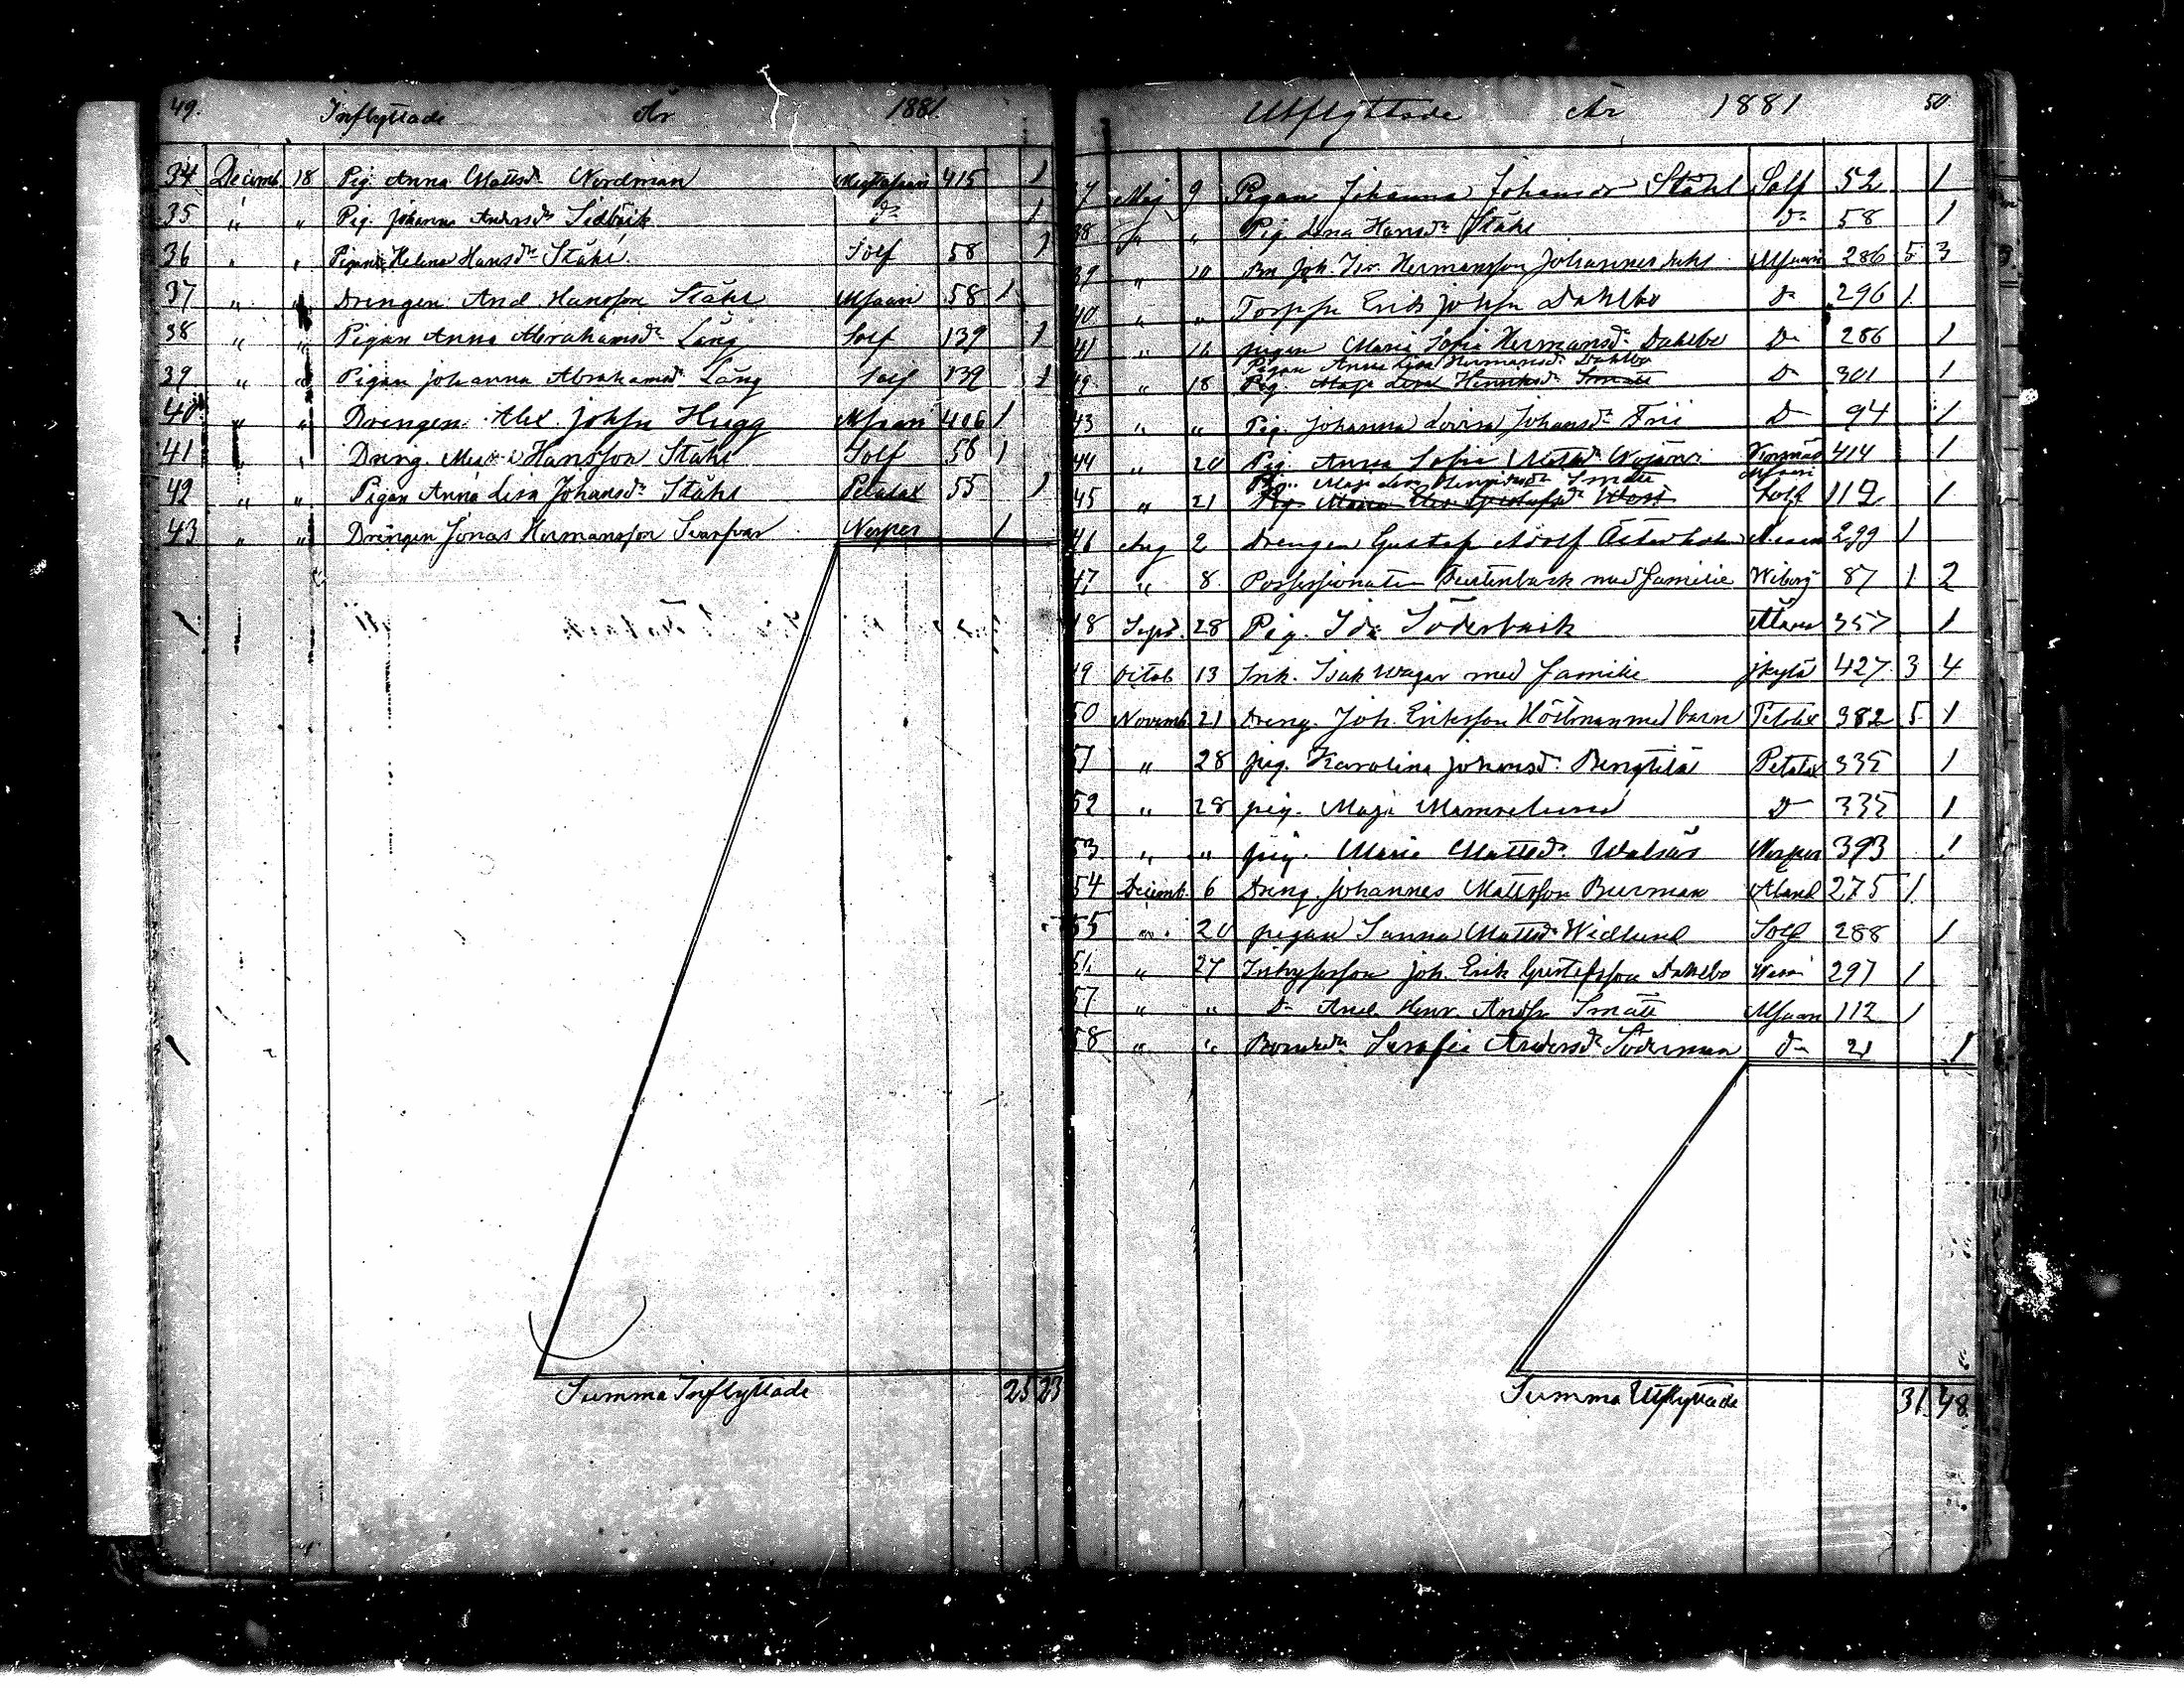 49. Inflyttade År 1881.
34 Decemb. 18 Pig. Anna Mattsdr Nordman 415 1
35 " " Pig. Johanna Andersdr Sidbäck do 1
36 " " Pigan Helena Hansdr Ståhl Solf 58 1
37 " " Drengen And. Hansson Ståhl Msaari 58 1
38 " " Pigan Anna Abrahamsdr Lång Solf 139 1
39 " " Pigan Johanna Abrahamsdr Lång Solf 139 1
40 " " Drengen Alex. Johsn Hugg Msaari 406 1
41 " " Dreng. Hansson Ståhl Solf 58 1
42 " " Pigan Anna Lisa Johansdr Ståhl Petalax 55 1
43 " " Drengen Jonas Hermansson Svarfvar Nerpes 1
Summa Inflyttade 25 23
Utflyttade År 1881 50.
37 Maj 9 Pigan Johanna Johansdr Ståhl Solf 52 1
38 " " Pig. Lena Hansdr Ståhl do 58 1
39 " 10 Bn Joh. Isr. Hermansson Johannesdahl Msaari 286 5 3
40 " " Torpsn Erik Johsn Dahlbo Do 296 1
41 " 16 pigan Maria Sofia Hermansdr Dahlbo Do 286 1
Pigan Anna Lisa Hermansdr Dahlbo
42 " 18 Pig. Maja Lena Henriksdr Smått D 301 1
43 " " Pig. Johanna Lovisa Johansdr Frii D 94 1
44 " 20 Pig. Anna Sofia Mattsdr Korsnäs 414 1
Pig. Maja Lena Henriksdr Smått Msaari
45 " 21 Pig. Maria Gustafsdr Solf 112 1
46 Aug 2 Drengen Gustaf Adolf Österholm 299 1
47 " 8 Possessionaten med familie Wiborg 87 1 2
48 Sept. 28 Pig. Ida Söderback 357 1
49 Octob 13 Inh. Isak Wagar med familie Jkylä 427 3 4
50 Novemb 21 Dreng. Joh. Eriksson Höstman med barn Petalax 382 5 1
51 " 28 pig. Karolina Johansdr Bengtilä Petalax 335 1
52 " 28 pig. Maja Mannelund D 335 1
53 " " pig. Maria Mattsdr Walsäs Nerpes 393 1
54 Decemb. 6 Dreng. Johannes Mattsson Burman Åland 275 1
55 " 20 pigan Sanna Mattsdr Widlund Solf 288 1
56 " 27 Inhysesson Joh. Erik Gustafsson Dahlbo Wasa 297 1
57 " " Do And. Henr. Andsn Smått Msaari 112 1
58 " " Bondedr Serafia Andersdr Söderman do 21 1
Summa Utflyttade 31 48